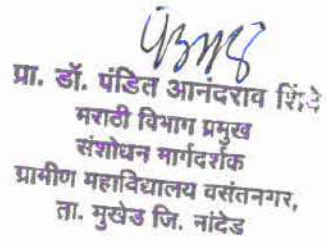 प्रा. डॉ. पंडित आनंदराव शिंदे
मराठी विभाग प्रमुख
संशोधन मार्गदर्शक
ग्रामीण महाविद्यालय वसंतनगर,
ता. मुखेड जि. नांदेड